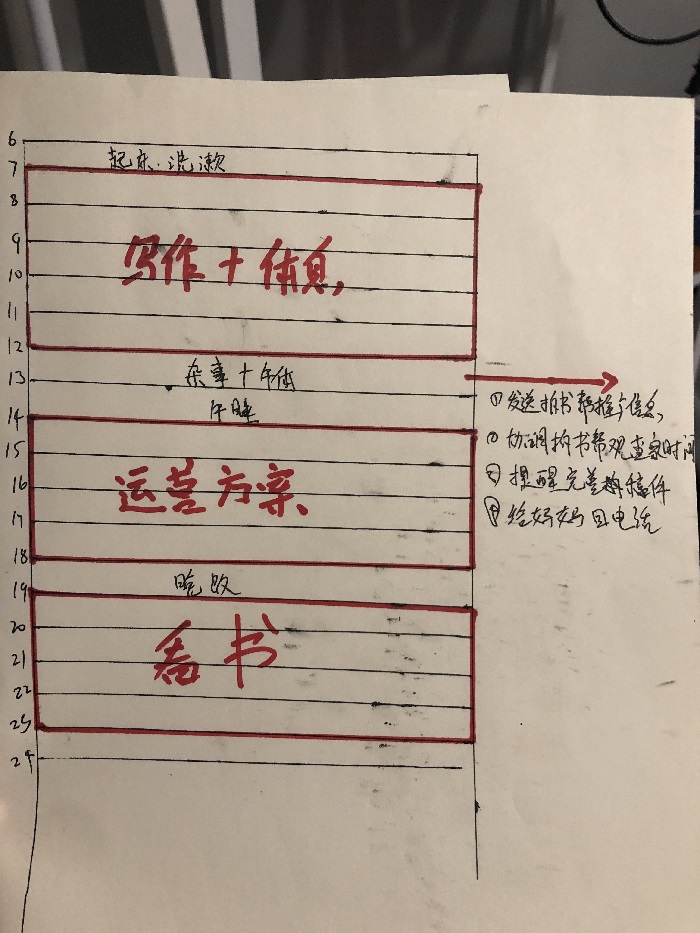 6
起床、洗漱
7
8
9
写作+休息
10
11
12
杂事+午休
13
午睡
14
15
16
运营方案
17
18
晚饭
19
20
看书
21
22
23
24
①发送拆书帮推介信息
②协调拆书帮观 时间
③提醒完善 稿件
④给妈妈回电话